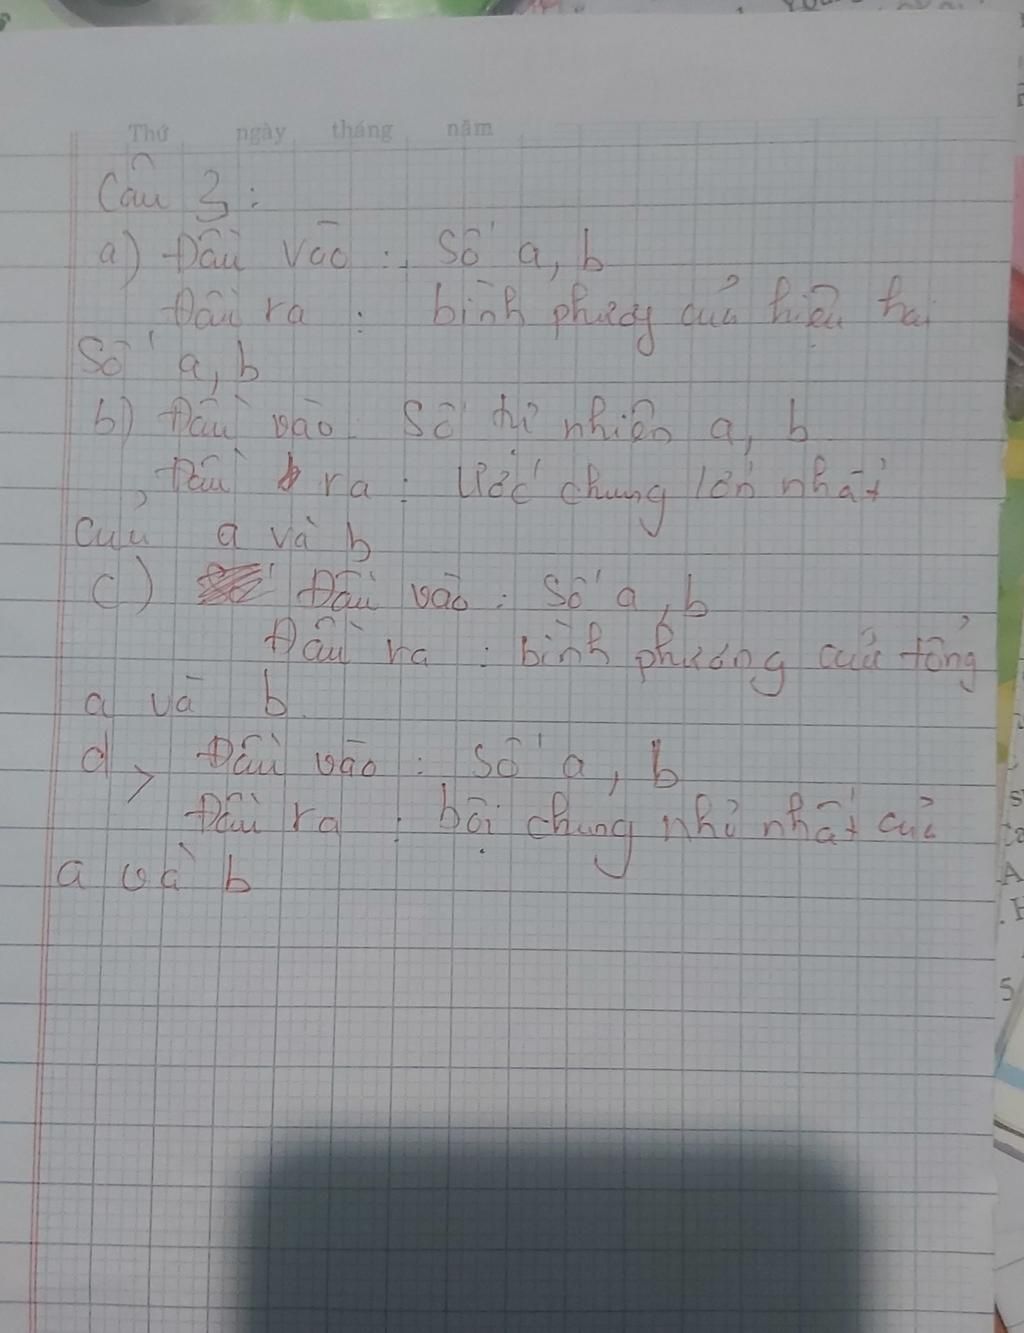 Thứ ngày tháng năm
Câu 3:
a) Đầu vào : Số a, b
Đầu ra : bình phương của hiệu hai
số a, b
b) Đầu vào Số tự nhiên a, b
Đầu ra : Ước chung lớn nhất
của a và b
c) Đầu vào : Số a, b
Đầu ra : bình phương của tổng
a và b
d, Đầu vào : Số a, b
Đầu ra : bội chung nhỏ nhất của
a và b